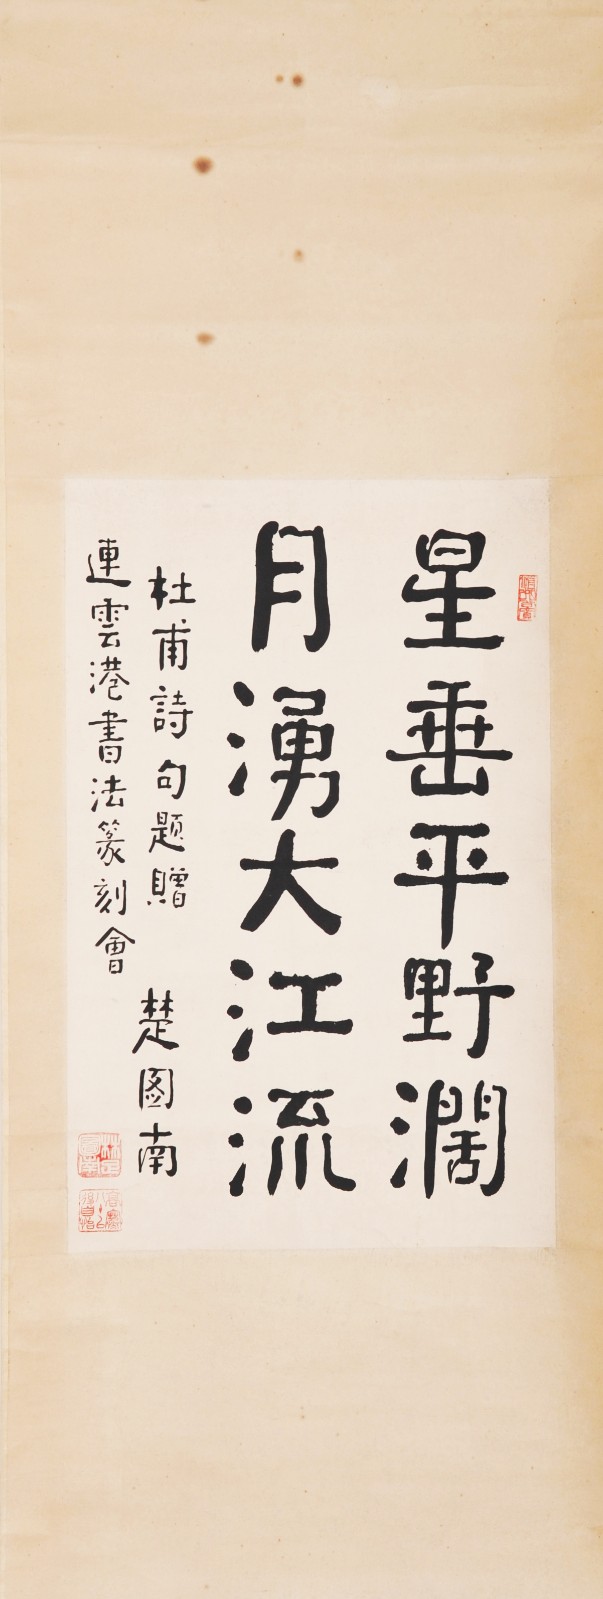 星垂平野濶
月湧大江流
杜甫詩句題贈
連雲港書法篆刻會
楚图南